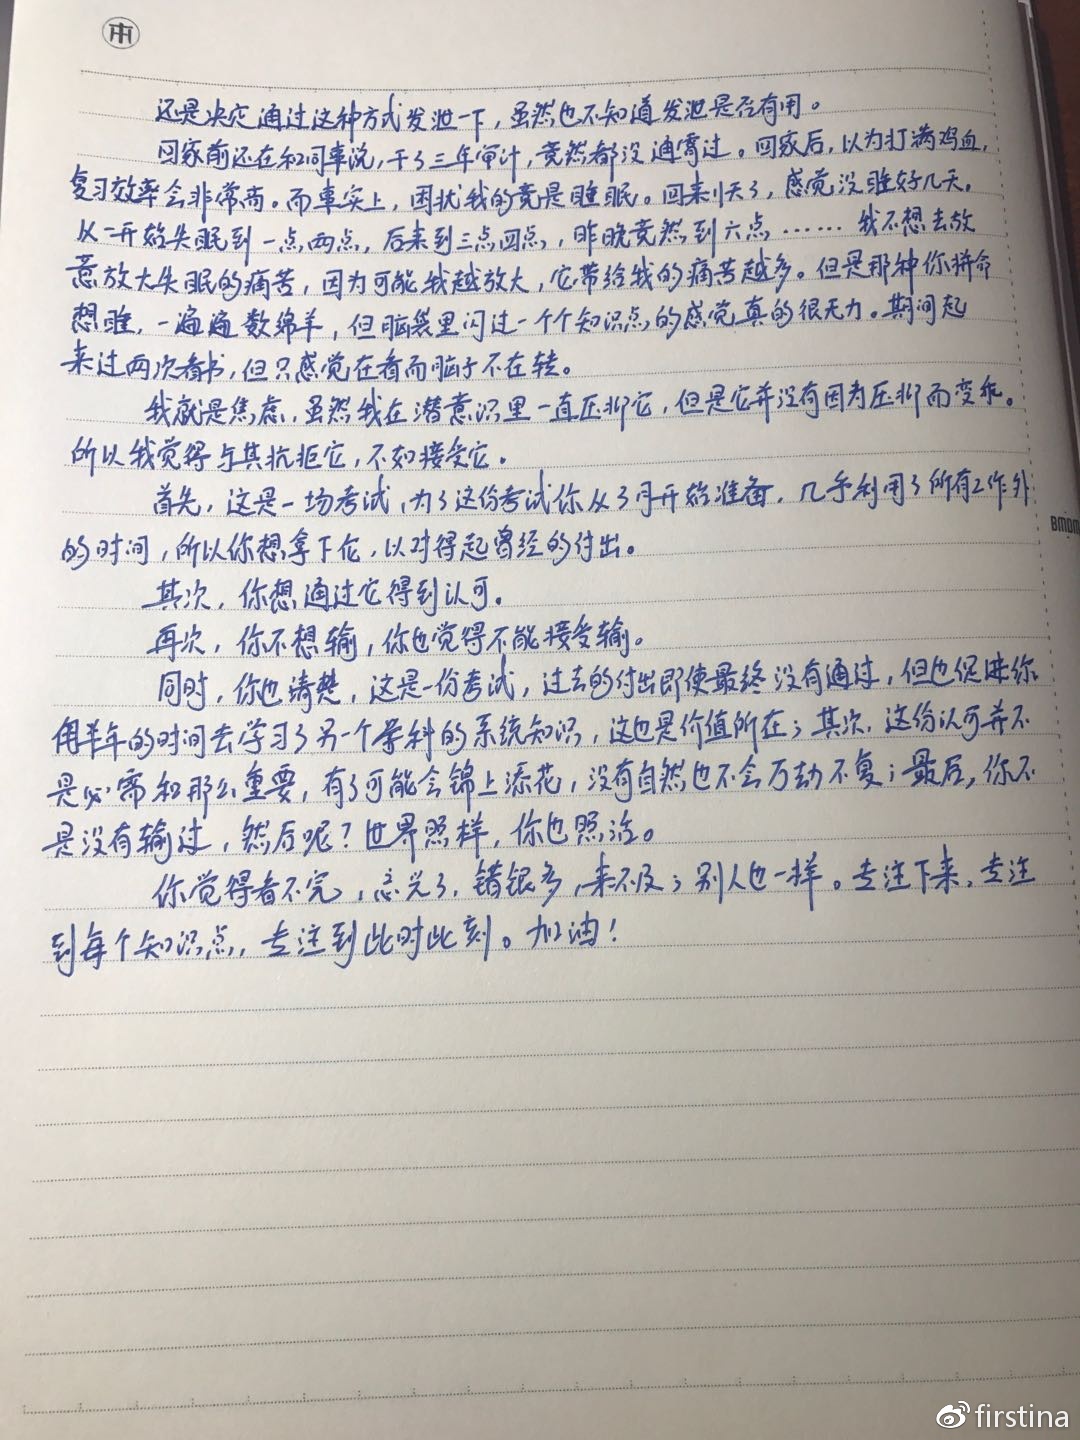 还是决定通过这种方式发泄一下，虽然也不知道发泄是否有用。
回家前还在和同事说，干了三年审计，竟然都没通宵过。回家后，以为打满鸡血，
复习效率会非常高。而事实上，困扰我的竟是睡眠。回来9天了，感觉没睡好几天。
从一开始失眠到一点两点，后来到三点四点，昨晚竟然到六点……我不想去放
意放大失眠的痛苦，因为可能我越放大，它带给我的痛苦越多。但是那种你拼命
想睡，一遍遍数绵羊，但脑袋里闪过一个个知识点的感觉真的很无力。期间起
来过两次看书，但只感觉在看而脑子不在转。
我就是焦虑，虽然我在潜意识里一直压抑它，但是它并没有因为压抑而变乖。
所以我觉得与其抗拒它，不如接受它。
首先，这是一场考试，为了这份考试你从3月开始准备，几乎利用了所有工作外
的时间，所以你想拿下它，以对得起曾经的付出。
其次，你想通过它得到认可。
再次，你不想输，你也觉得不能接受输。
同时，你也清楚，这是一份考试，过去的付出即使最终没有通过，但也促进你
用半年的时间去学习了另一个学科的系统知识，这也是价值所在；其次，这份认可并不
是必需和那么重要，有了可能会锦上添花，没有自然也不会万劫不复；最后，你不
是没有输过，然后呢？世界照样，你也照活。
你觉得看不完，忘光了，错银多，来不及；别人也一样。专注下来，专注
到每个知识点，专注到此时此刻。加油！
BMDM
firstina